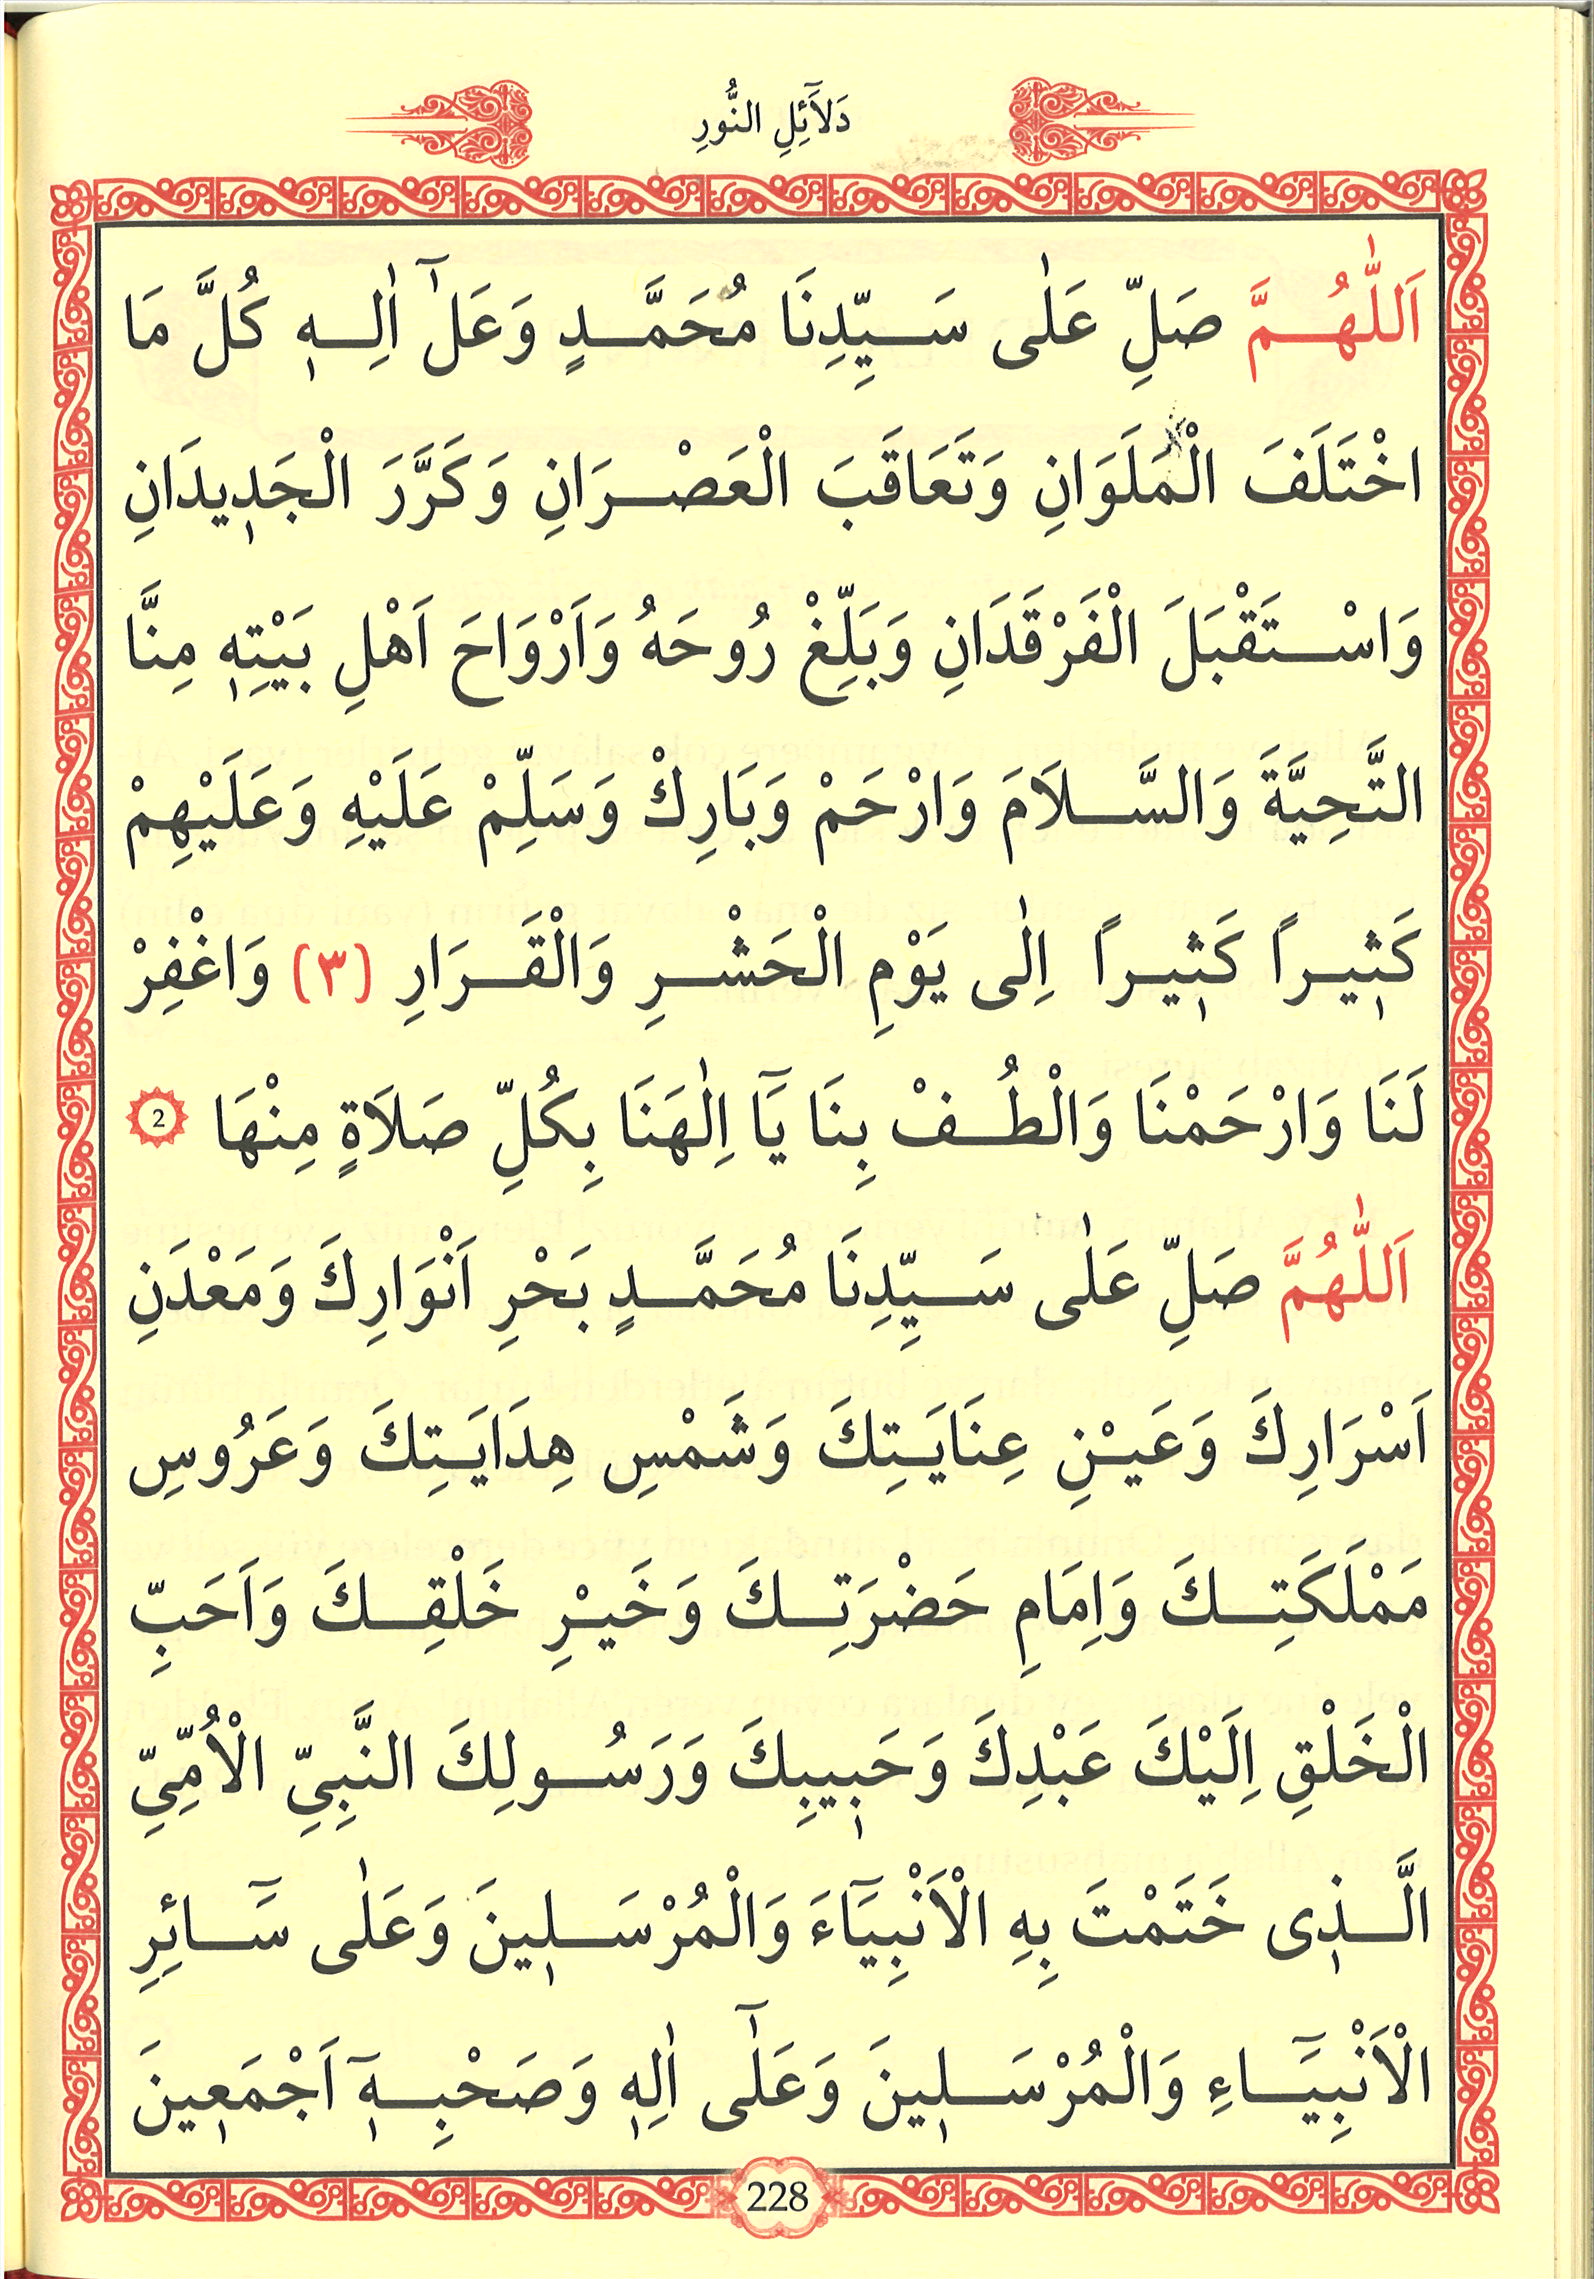 دَلَٓائِلِ النُّورِ
اَللّٰهُمَّ صَلِّ عَلٰى سَيِّدِنَا مُحَمَّدٍ وَعَلٰٓ اٰلِهٖ كُلَّ مَا
اخْتَلَفَ الْمَلَوَانِ وَتَعَاقَبَ الْعَصْرَانِ وَكَرَّرَ الْجَدٖيدَانِ
وَاسْتَقْبَلَ الْفَرْقَدَانِ وَبَلِّغْ رُوحَهُ وَاَرْوَاحَ اَهْلِ بَيْتِهٖ مِنَّا
التَّحِيَّةَ وَالسَّلَامَ وَارْحَمْ وَبَارِكْ وَسَلِّمْ عَلَيْهِ وَعَلَيْهِمْ
كَثٖيراً كَثٖيراً اِلٰى يَوْمِ الْحَشْرِ وَالْقَرَارِ (٣) وَاغْفِرْ
لَنَا وَارْحَمْنَا وَالْطُفْ بِنَا يَٓا اِلٰهَنَا بِكُلِّ صَلَاةٍ مِنْهَا 2
اَللّٰهُمَّ صَلِّ عَلٰى سَيِّدِنَا مُحَمَّدٍ بَحْرِ اَنْوَارِكَ وَمَعْدَنِ
اَسْرَارِكَ وَعَيْنِ عِنَايَتِكَ وَشَمْسِ هِدَايَتِكَ وَعَرُوسِ
مَمْلَكَتِكَ وَاِمَامِ حَضْرَتِكَ وَخَيْرِ خَلْقِكَ وَاَحَبِّ
الْخَلْقِ اِلَيْكَ عَبْدِكَ وَحَبٖيبِكَ وَرَسُولِكَ النَّبِيِّ الْاُمِّيِّ
الَّذٖى خَتَمْتَ بِهِ الْاَنْبِيَٓاءَ وَالْمُرْسَلٖينَ وَعَلٰى سَٓائِرِ
الْاَنْبِيَٓاءِ وَالْمُرْسَلٖينَ وَعَلٰٓى اٰلِهٖ وَصَحْبِهٖٓ اَجْمَعٖينَ
228